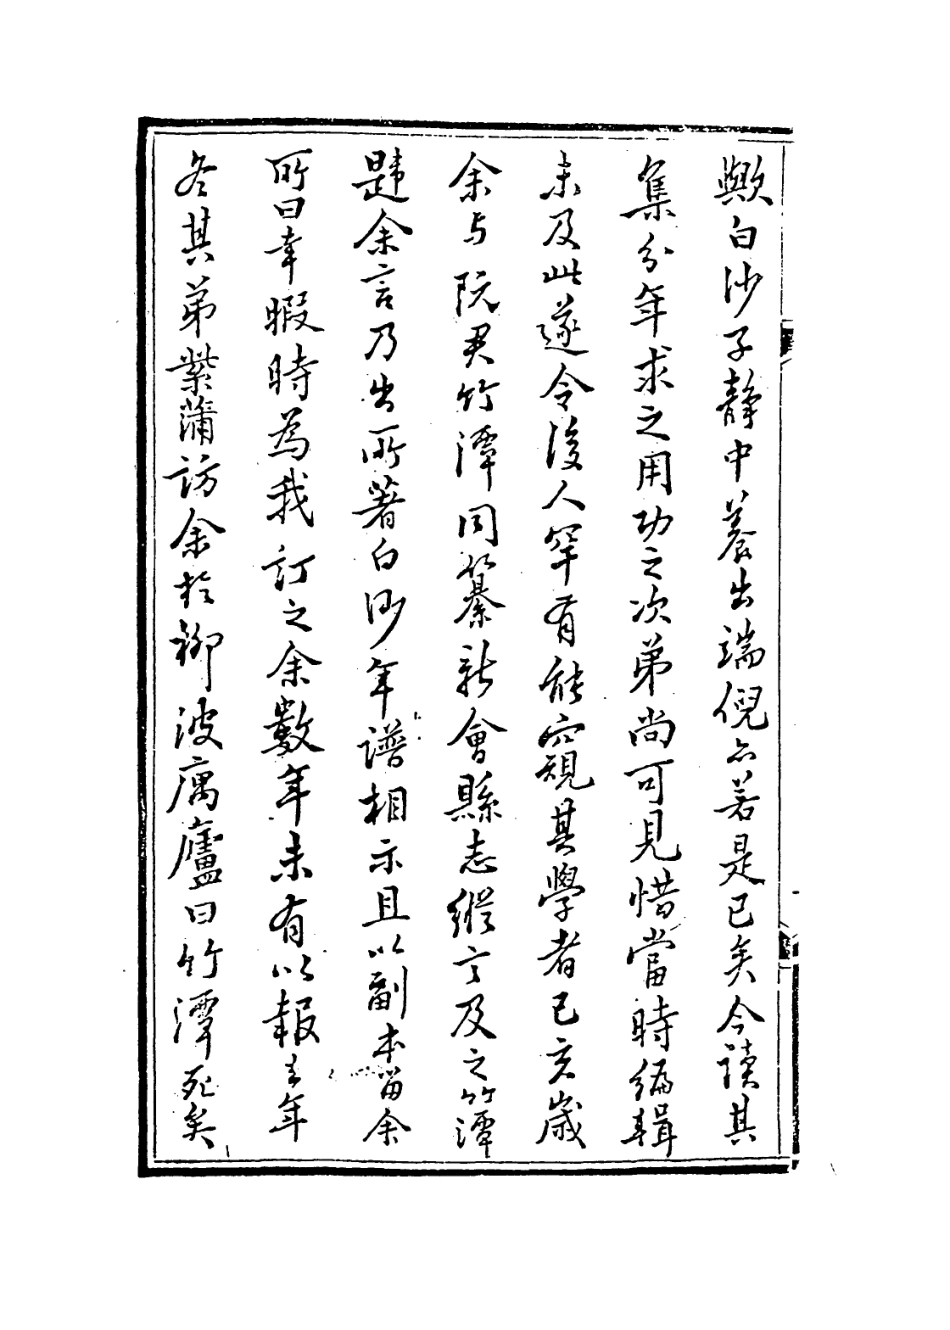 歟白沙子靜中養出端倪亦若是已矣今讀其
集分年求之用功之次第尚可見惜當時編輯
未及此遂令後人罕有能窺其學者己亥歲
余与阮君竹潭同纂新會縣志縱言及之竹潭
韙余言乃出所著白沙年譜相示且以副本留余
所曰幸暇時為我訂之余數年未有以報壬年
冬其弟紫蒲訪余於柳波寓廬曰竹潭死矣